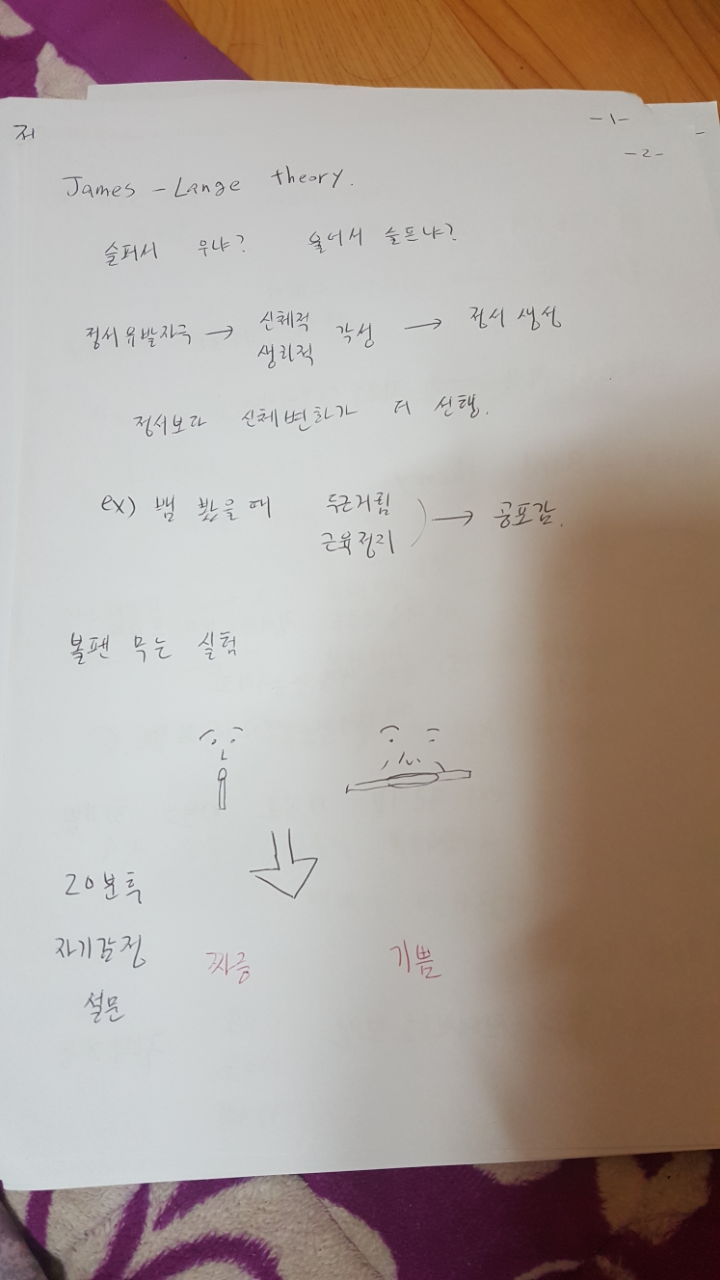 저
-1-
-2-
James - Lange theory.
슬퍼서 우냐? 울어서 슬프냐?
정서유발자극 → 신체적 생리적 각성 → 정서 생성
정서보다 신체변화가 더 선행.
ex) 뱀 봤을 때 두근거림 근육정리 → 공포감.
볼펜 무는 실험
20분후
자기감정 짜증 기쁨
설문